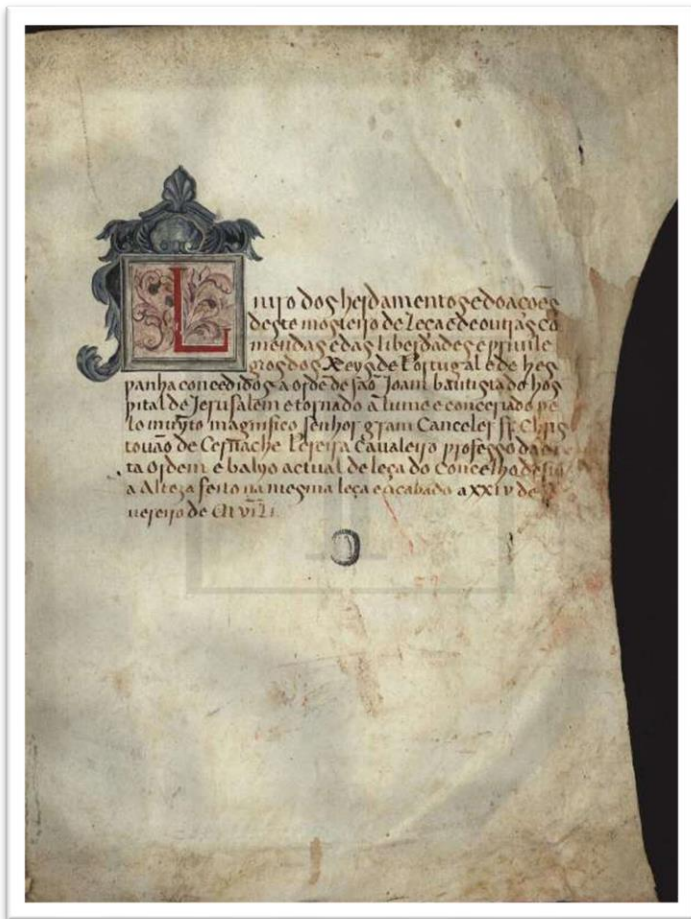 Liuro dos herdamentos e doações
deste mosteiro de Leça e de outras co
mendas e das liberdades e priuile
gios dos Reys de Portugal e de hes
panha concedidos a ordẽ de são Ioam bautista do hos
pital de Jerusalem e tornado a lume e concertado pe
lo muyto magnifico senhor gram Canceler Chris
touão de Cernache Pereira Caualeiro professo da di
ta Ordem e balyo actual de leça do concelho de sua
a Alteza feito na mesma leça e acabado a XXIV de
uereiro de